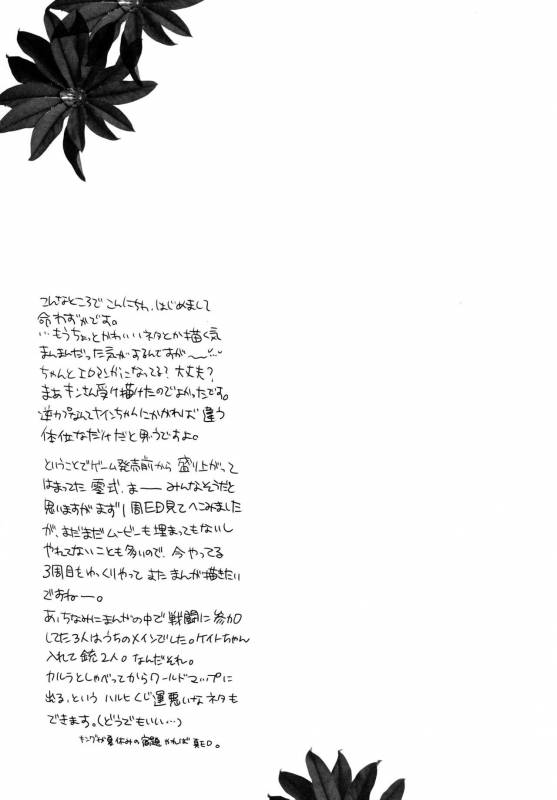 こんなところでこんにちわ、はじめまして
命わずかです。
…もうちょっとかわいいネタとか描く気
まんまんだった気がするんですが〜…
ちゃんとエロマンガになってる?大丈夫?
まぁキンさん受け描けたのでよかったです。
逆カプなんてナインちゃんにかかれば違う
体位なだけだと思うですよ。
ということでゲーム発売前から盛り上がって
はまってた零式、まーみんなそうだと
思いますがまず1周ED見てへこみました
が、まだまだムービーも埋まってもないし
やれてないことも多いので、今やってる
3周目をゆっくりやってまたまんが描きたい
ですねー。
あ、ちなみにまんがの中で戦闘に参加
してた3人はうちのメインでした。ケイトちゃん
入れて銃2人。なんだそれ。
カルラとしゃべってからワールドマップに
出る、というハルヒくじ運悪いなネタも
できます。(どうでもいい…)
キングが夏休みの宿題やれば真ED。